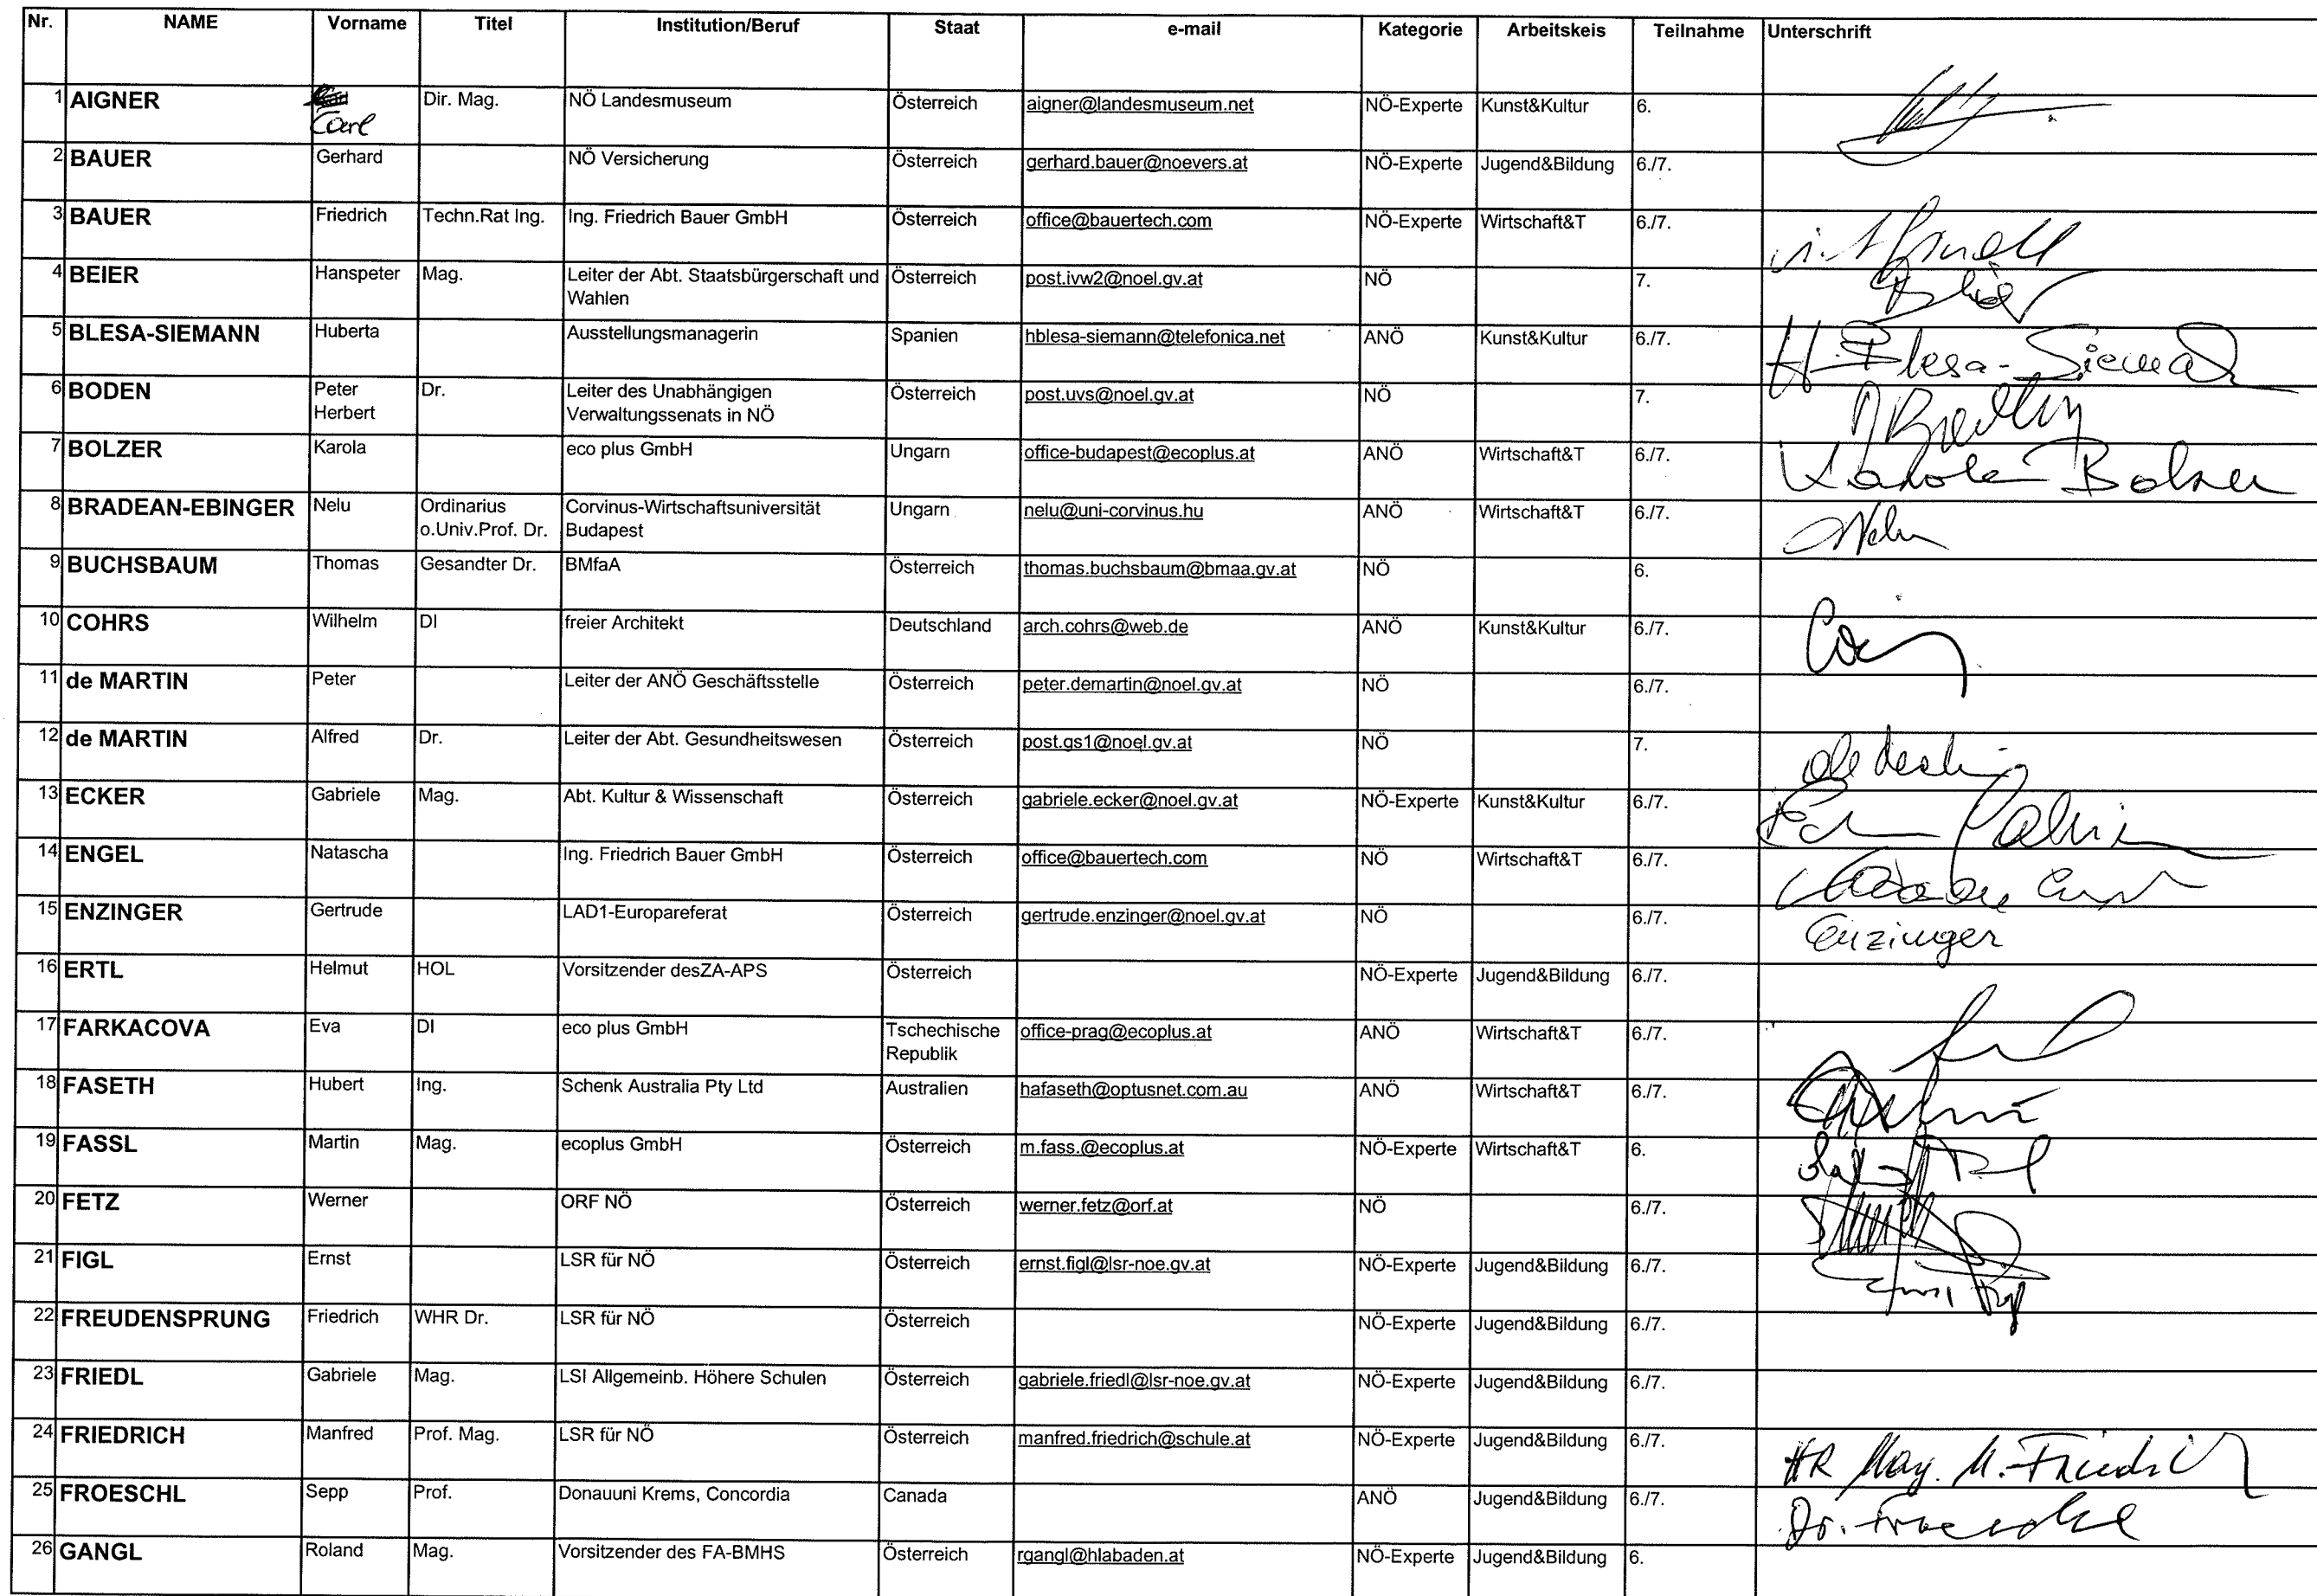 Nr. NAME Vorname Titel Institution/Beruf Staat e-mail Kategorie Arbeitskeis Teilnahme Unterschrift
1 AIGNER Carl Dir. Mag. NÖ Landesmuseum Österreich aigner@landesmuseum.net NÖ-Experte Kunst&Kultur 6.
2 BAUER Gerhard NÖ Versicherung Österreich gerhard.bauer@noevers.at NÖ-Experte Jugend&Bildung 6./7.
3 BAUER Friedrich Techn.Rat Ing. Ing. Friedrich Bauer GmbH Österreich office@bauertech.com NÖ-Experte Wirtschaft&T 6./7.
4 BEIER Hanspeter Mag. Leiter der Abt. Staatsbürgerschaft und Österreich post.ivw2@noel.gv.at NÖ 7.
Wahlen
5 BLESA-SIEMANN Huberta Ausstellungsmanagerin Spanien hblesa-siemann@telefonica.net ANÖ Kunst&Kultur 6./7. H. Blesa-Siemann
6 BODEN Peter Dr. Leiter des Unabhängigen Österreich post.uvs@noel.gv.at NÖ 7.
Herbert Verwaltungssenats in NÖ
7 BOLZER Karola eco plus GmbH Ungarn office-budapest@ecoplus.at ANÖ Wirtschaft&T 6./7. Karola Bolzer
8 BRADEAN-EBINGER Nelu Ordinarius Corvinus-Wirtschaftsuniversität Ungarn nelu@uni-corvinus.hu ANÖ Wirtschaft&T 6./7. Nelu
o.Univ.Prof. Dr. Budapest
9 BUCHSBAUM Thomas Gesandter Dr. BMfaA Österreich thomas.buchsbaum@bmaa.gv.at NÖ 6.
10 COHRS Wilhelm DI freier Architekt Deutschland arch.cohrs@web.de ANÖ Kunst&Kultur 6./7.
11 de MARTIN Peter Leiter der ANÖ Geschäftsstelle Österreich peter.demartin@noel.gv.at NÖ 6./7.
12 de MARTIN Alfred Dr. Leiter der Abt. Gesundheitswesen Österreich post.gs1@noel.gv.at NÖ 7.
13 ECKER Gabriele Mag. Abt. Kultur & Wissenschaft Österreich gabriele.ecker@noel.gv.at NÖ-Experte Kunst&Kultur 6./7.
14 ENGEL Natascha Ing. Friedrich Bauer GmbH Österreich office@bauertech.com NÖ Wirtschaft&T 6./7.
15 ENZINGER Gertrude LAD1-Europareferat Österreich gertrude.enzinger@noel.gv.at NÖ 6./7. Enzinger
16 ERTL Helmut HOL Vorsitzender desZA-APS Österreich NÖ-Experte Jugend&Bildung 6./7.
17 FARKACOVA Eva DI eco plus GmbH Tschechische office-prag@ecoplus.at ANÖ Wirtschaft&T 6./7.
Republik
18 FASETH Hubert Ing. Schenk Australia Pty Ltd Australien hafaseth@optusnet.com.au ANÖ Wirtschaft&T 6./7.
19 FASSL Martin Mag. ecoplus GmbH Österreich m.fass.@ecoplus.at NÖ-Experte Wirtschaft&T 6.
20 FETZ Werner ORF NÖ Österreich werner.fetz@orf.at NÖ 6./7.
21 FIGL Ernst LSR für NÖ Österreich ernst.figl@lsr-noe.gv.at NÖ-Experte Jugend&Bildung 6./7.
22 FREUDENSPRUNG Friedrich WHR Dr. LSR für NÖ Österreich NÖ-Experte Jugend&Bildung 6./7.
23 FRIEDL Gabriele Mag. LSI Allgemeinb. Höhere Schulen Österreich gabriele.friedl@lsr-noe.gv.at NÖ-Experte Jugend&Bildung 6./7.
24 FRIEDRICH Manfred Prof. Mag. LSR für NÖ Österreich manfred.friedrich@schule.at NÖ-Experte Jugend&Bildung 6./7. HR Mag. M. Friedrich
25 FROESCHL Sepp Prof. Donauuni Krems, Concordia Canada ANÖ Jugend&Bildung 6./7. Dr. Froeschl
26 GANGL Roland Mag. Vorsitzender des FA-BMHS Österreich rgangl@hlabaden.at NÖ-Experte Jugend&Bildung 6.